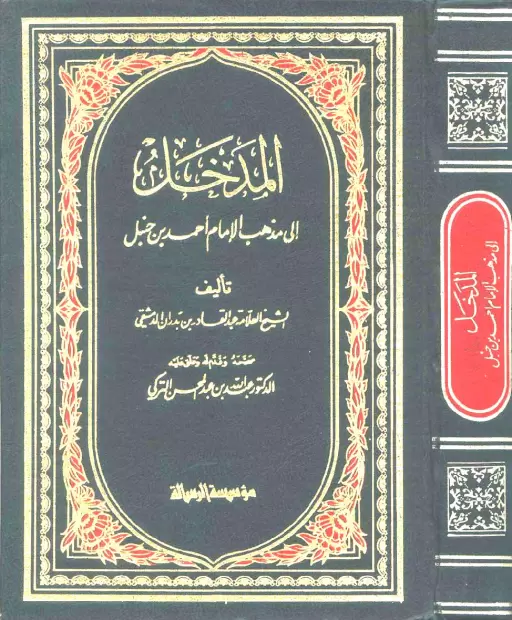 المدخل
إلى مذهب الإمام أحمد بن حنبل
تأليف
الشيخ العلامة عبد القادر بن بدران الدمشقي
صححه وقدم له وعلق عليه
الدكتور عبد الله بن عبد المحسن التركي
مؤسسة الرسالة
المدخل
إلى مذهب الإمام أحمد بن حنبل